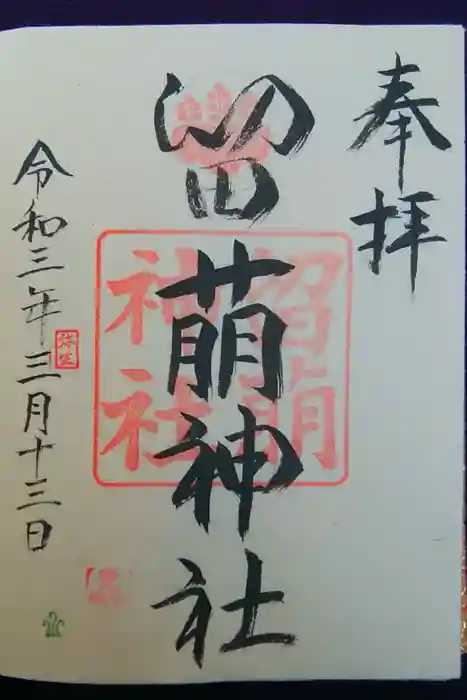 奉拝
留萌神社
留萌神社
令和三年三月十三日
弥生